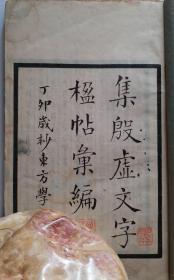 集殷虛文字
楹帖彙編
丁卯歲杪東方學